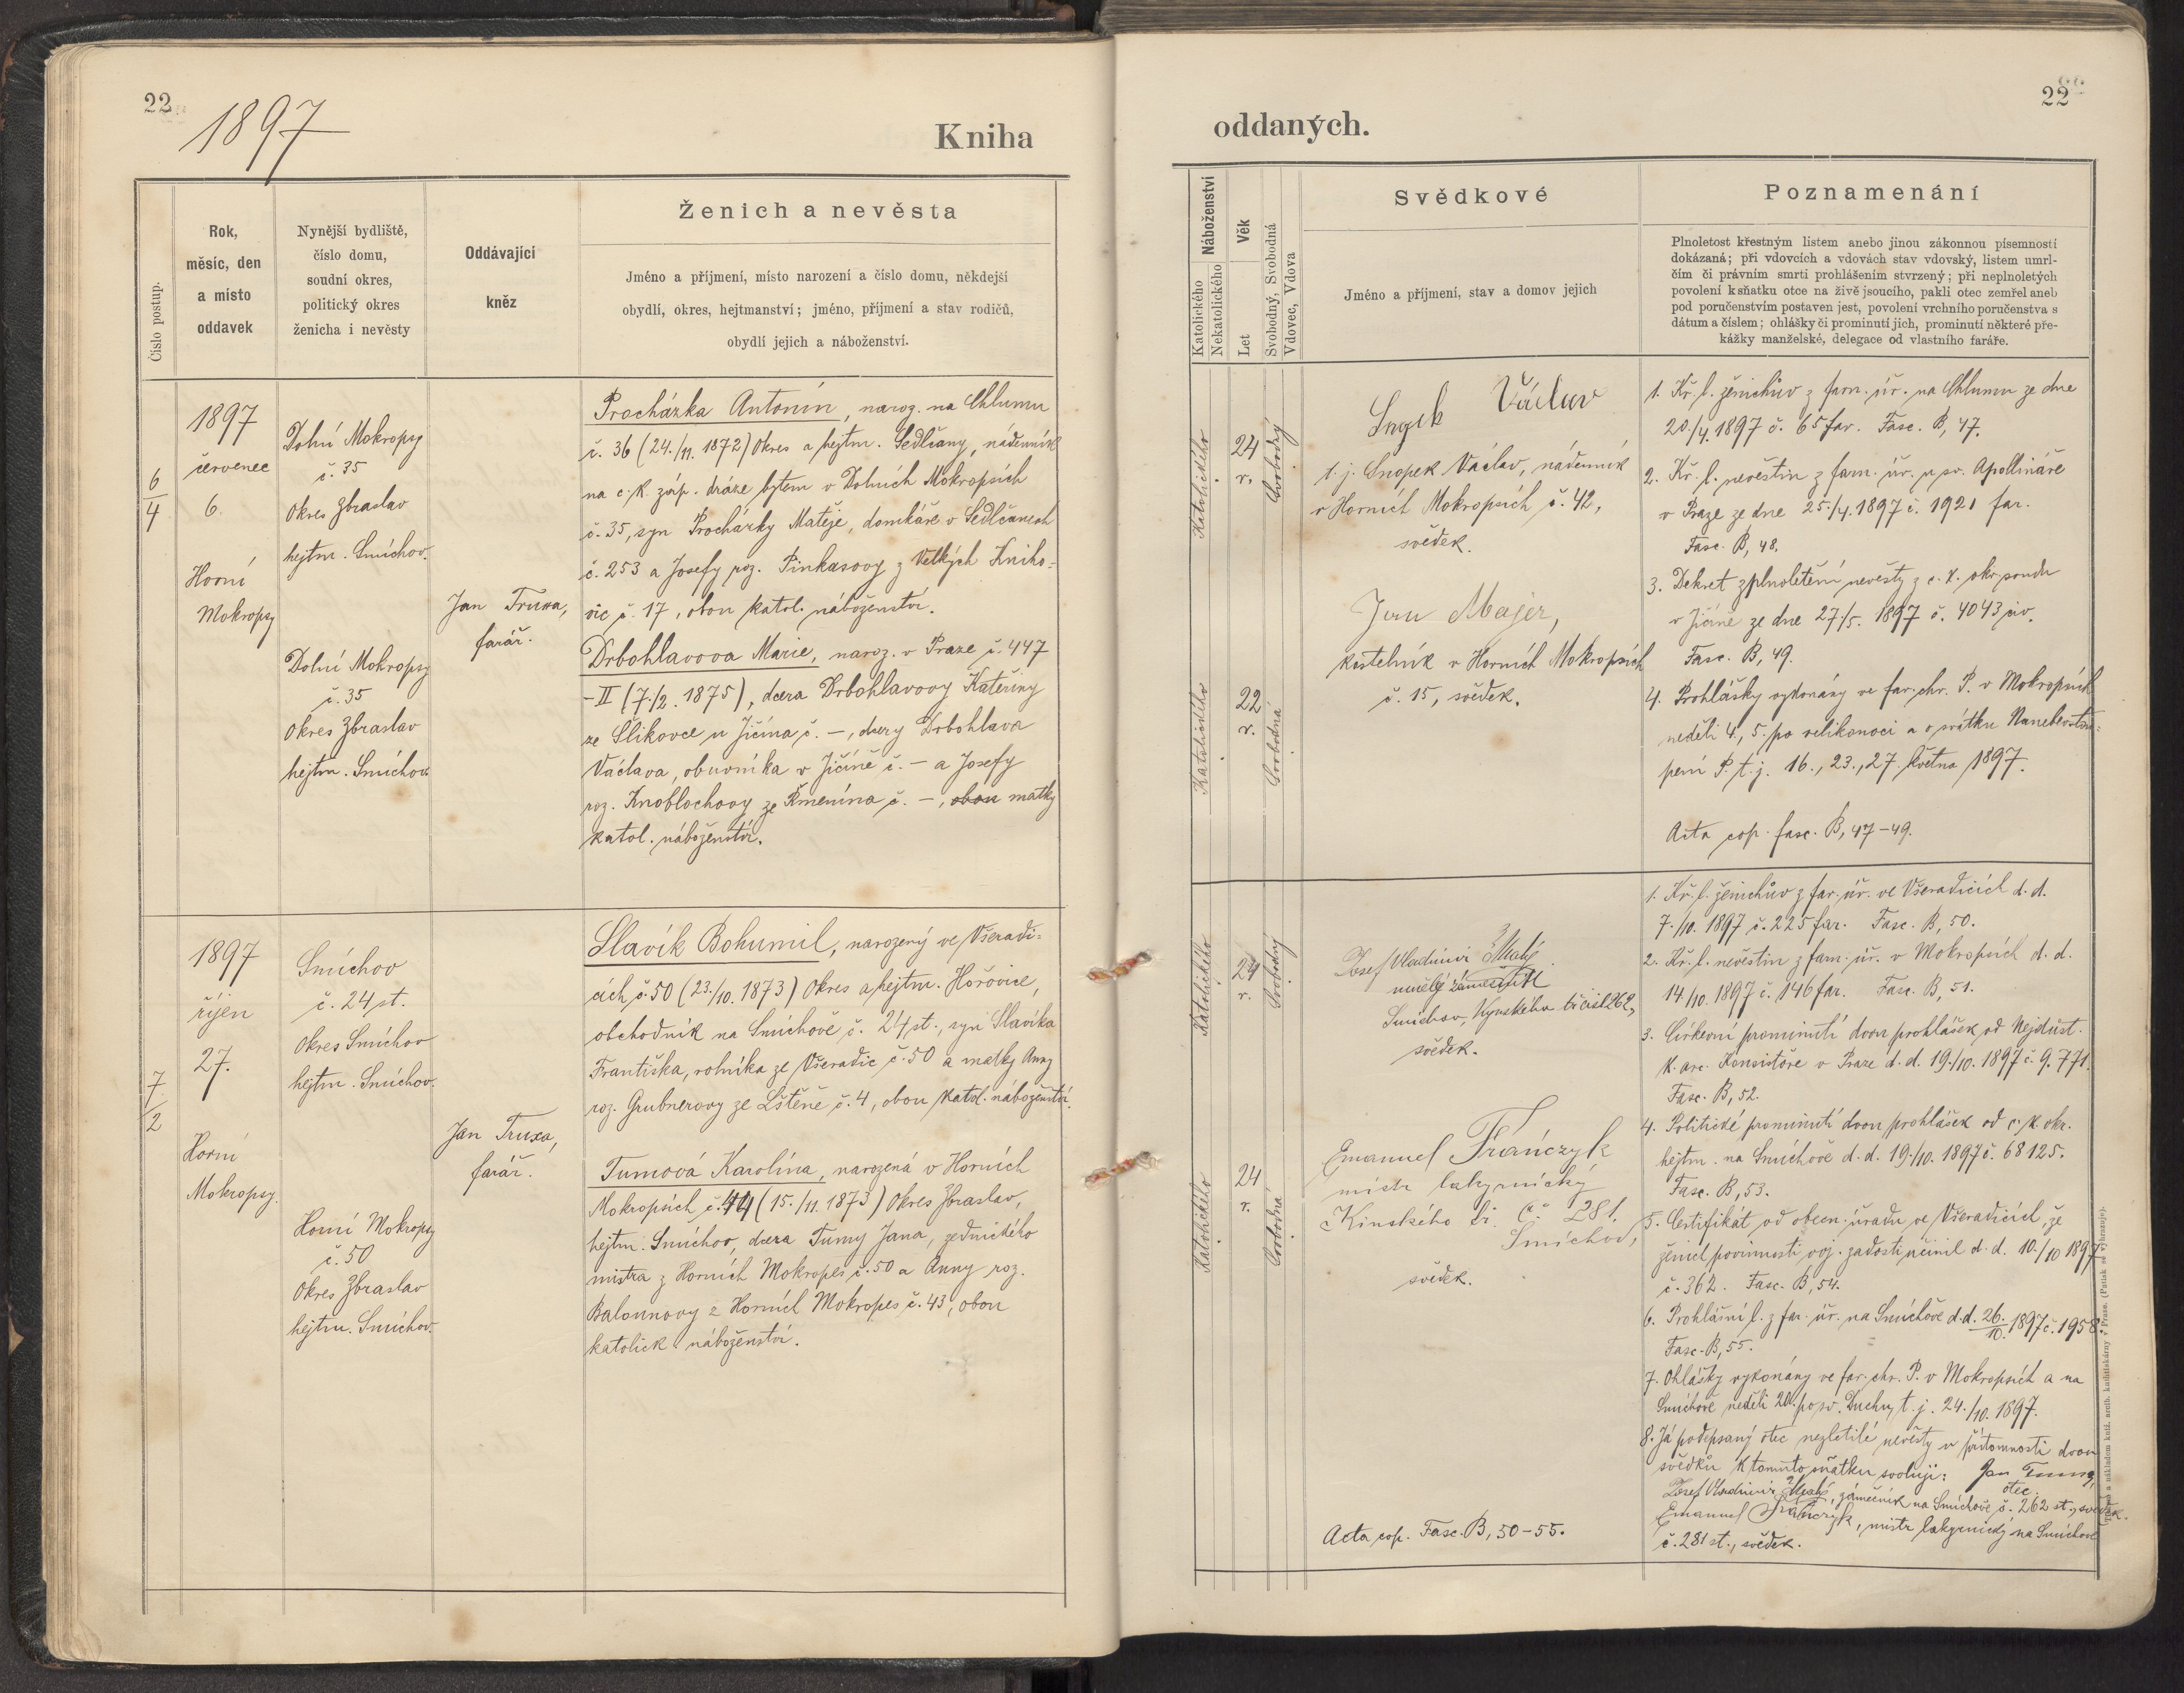 22
1897
Kniha
Číslo postup.
Rok,
měsíc, den
a místo
oddavek
Nynější bydliště,
číslo domu,
soudní okres,
politický okres
ženicha i nevěsty
Oddávající
kněz
Ženich a nevěsta
Jméno a příjmení, místo narození a číslo domu, někdejší
obydlí, okres, hejtmanství; jméno, příjmení a stav rodičů,
obydlí jejich a náboženství.
6
4
1897
červenec
6.
Horní
Mokropsy
Dolní Mokropsy
č. 35
Okres Zbraslav
hejtm. Smíchov.
Dolní Mokropsy
č. 35
Okres Zbraslav
hejtm. Smíchov
Jan Truxa,
farář.
Procházka Antonín, naroz. na Chlumu
č. 36 (24./11. 1872) Okres a hejtm. Sedlčany, nádenník
na c. k. záp. dráze bytem v Dolních Mokropsích
č. 35, syn Procházky Matěje, domkáře v Sedlčanech
č. 253 a Josefy roz. Pinkasovy z Velkých Kniho-
vic č. 17, obou katol. náboženství.
Drbohlavova Marie, naroz. v Praze č. 447
-II (7./2. 1875), dcera Drbohlavovy Kateřiny
ze Šlikovce u Jičína č. –, dcery Drbohlava
Václava, obuvníka v Jičíně č. – a Josefy
roz. Knoblochovy ze č. –, obou matky
katol. náboženství.
7
2
1897
říjen
27.
Horní
Mokropsy.
Smíchov
č. 24 st.
Okres Smíchov
hejtm. Smíchov.
Horní Mokropsy
č. 50
Okres Zbraslav
hejtm. Smíchov.
Jan Truxa,
farář.
Slavík Bohumil, narozený ve Všeradi-
cích č. 50 (23./10. 1873) Okres a hejtm. Hořovice,
obchodník na Smíchově č. 24 st., syn Slavíka
Františka, rolníka ze Všeradic č. 50 a matky Anny
roz. Grubnerovy ze Lštěně č. 4, obou katol. náboženství.
Tumová Karolína, narozená v Horních
Mokropsích č. 44 (15./11. 1873) Okres Zbraslav,
hejtm. Smíchov, dcera Tumy Jana, zednického
mistra z Horních Mokropes č. 50 a Anny roz.
Balounovy z Horních Mokropes č. 43, obou
katolick. náboženství.
22
oddaných.
Náboženství
Katolického
Nekatolického
Věk
Let
Svobodný, Svobodná
Vdovec, Vdova
Svědkové
Jméno a příjmení, stav a domov jejich
Poznamenání
Plnoletost křestným listem anebo jinou zákonnou písemností
dokázaná; při vdovcích a vdovách stav vdovský, listem umrl-
čím či právním smrti prohlášením stvrzený; při neplnoletých
povolení k sňatku otce na živě jsoucího, pakli otec zemřel aneb
pod poručenstvím postaven jest, povolení vrchního poručenstva s
dátum a číslem; ohlášky či prominutí jich, prominutí některé pře-
kážky manželské, delegace od vlastního faráře.
Katolického
24
r.
Svobodný
Katolického
22
r.
Svobodná
Václav
t. j. Snopek Václav, nádenník
v Horních Mokropsích č. 42,
svědek.
Jan Majer,
kostelník v Horních Mokropsích
č. 15, svědek.
1. Kř. l. ženichův z farn. úř. na Chlumu ze dne
20./4. 1897 č. 65 far. Fasc. B, 47.
2. Kř. l. nevěstin z farn. úř. u sv. Apollináře
v Praze ze dne 25./4. 1897 č. 1921 far.
Fasc. B, 48.
3. Dekret zplnoletění nevěsty z c. k. okr. soudu
v Jičíně ze dne 27./5. 1897 č. 4043 civ.
Fasc. B, 49.
4. Prohlášky vykonány ve far. chr. P. v Mokropsích
neděli 4., 5. po velikonoci a o svátku Nanebevstou-
pení P. t. j. 16., 23., 27. května 1897.
Acta cop. fasc. B, 47–49.
Katolického
24
r.
Svobodný
Katolického
24
r.
Svobodná
Josef Vladimír Malý
umělý zámečník
Smíchov, Kynského tř čísl 262,
svědek.
Emanuel Frańczyk
mistr lakyrnický
Kinského tř. č. 281.
Smíchov,
svědek.
Acta cop. Fasc. B, 50–55.
1. Kř. l. ženichův z far. úř. ve Všeradicích d. d.
7./10. 1897 č. 225 far. Fasc. B, 50.
2. Kř. l. nevěstin z farn. úř. v Mokropsích d. d.
14./10. 1897 č. 146 far. Fasc. B, 51.
3. Církevní prominutí dvou prohlášek od Nejdůst.
k. arc. Konsistoře v Praze d. d. 19./10. 1897 č. 9.771.
Fasc. B, 52.
4. Politické prominutí dvou prohlášek od c. k. okr.
hejtm. na Smíchově d. d. 19./10. 1897 č. 68125.
Fasc. B, 53.
5. Certifikát od obecn. úřadu ve Všeradicích, že
ženich povinnosti voj. zadosti učinil d. d. 10./10 1897
č. 362. Fasc. B, 54.
6. Prohlášní l. z far. úř. na Smíchově d. d. 26./10. 1897 č. 1958.
Fasc. B, 55.
7. Ohlášky vykonány ve far. chr. P. v Mokropsích a na
Smíchově neděli 20. po sv. Duchu, t. j. 24./10. 1897.
8. Já podepsaný otec nezletilé nevěsty u přítomnosti dvou
svědků k tomuto sňatku svoluji: Jan Tuma,
otec.
Josef Vladimír Malý, zámečník na Smíchově č. 262 st., svědek.
Emanuel Frańczyk, mistr lakyrnický na Smíchově
č. 281 st., svědek.